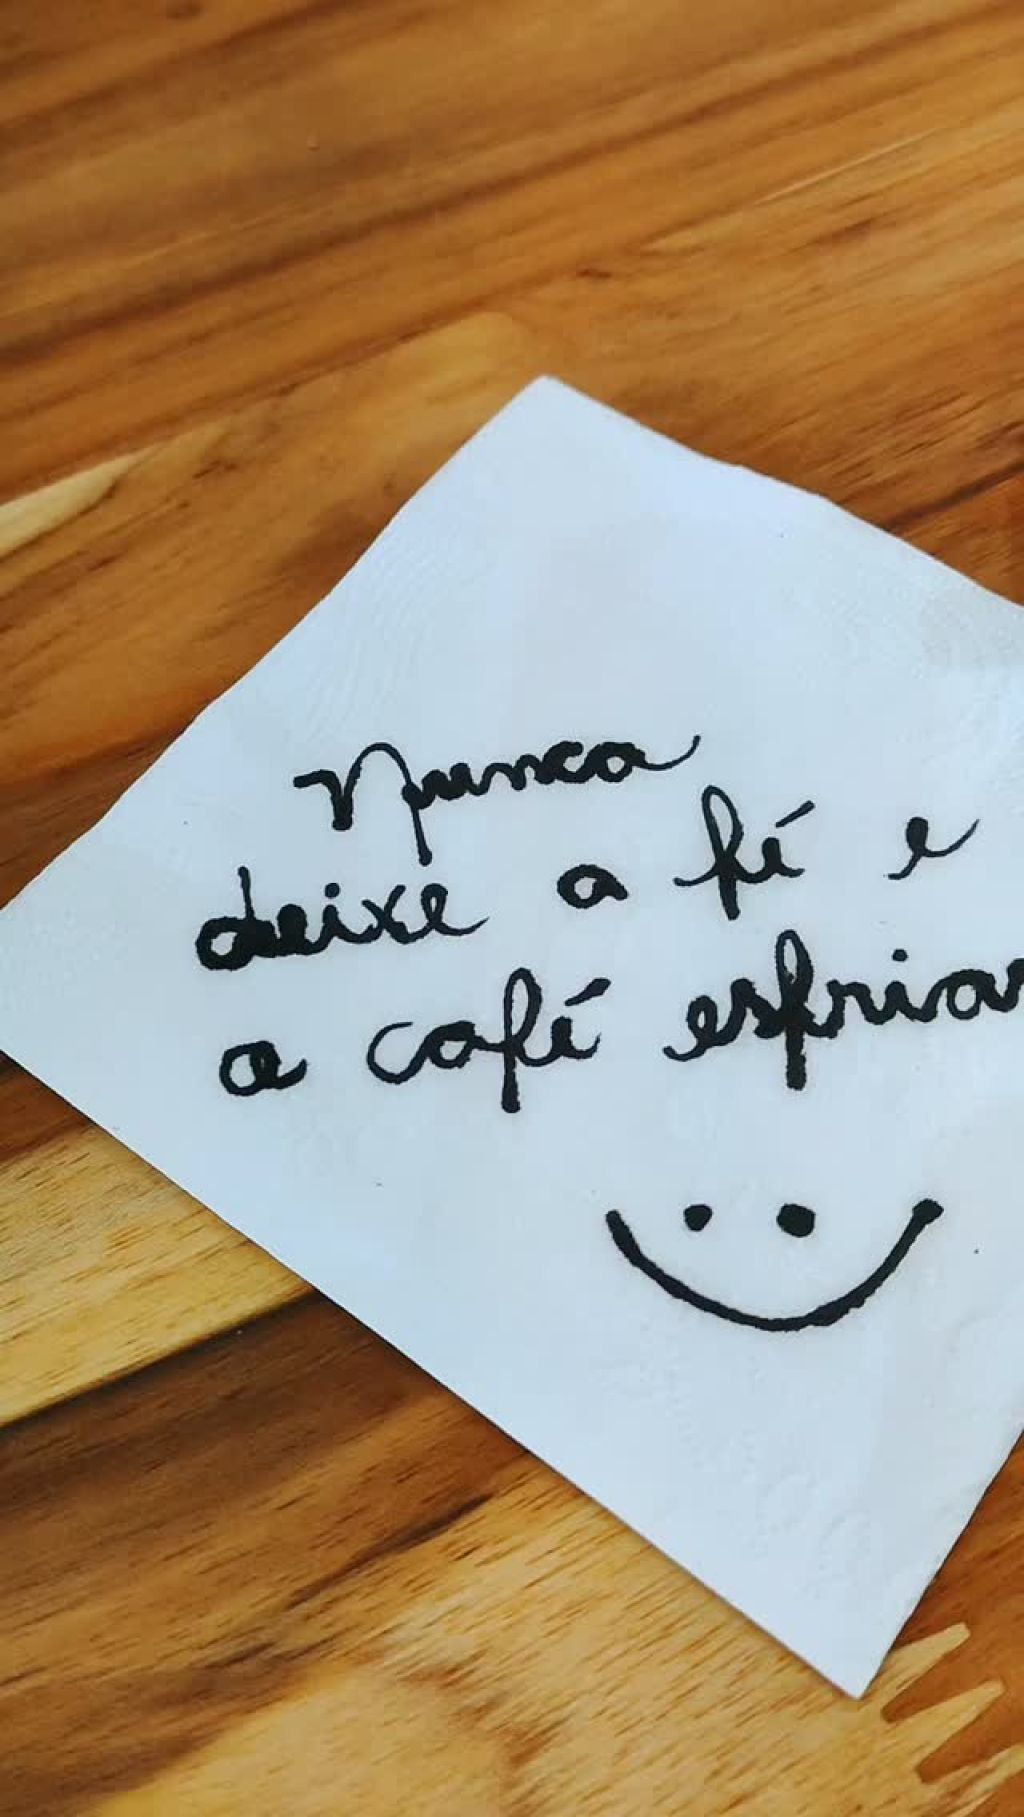 Nunca
deixe a fé e
o café esfriar